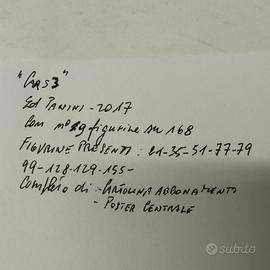 "CARS 3"
Ed PANINI - 2017
Con nº 9 figurine su 168
FIGURINE PRESENTI: 21-35-51-77-79
99-128-129-155-
Completo di: - CARTOLINA ABBONAMENTO
- POSTER CENTRALE
subito